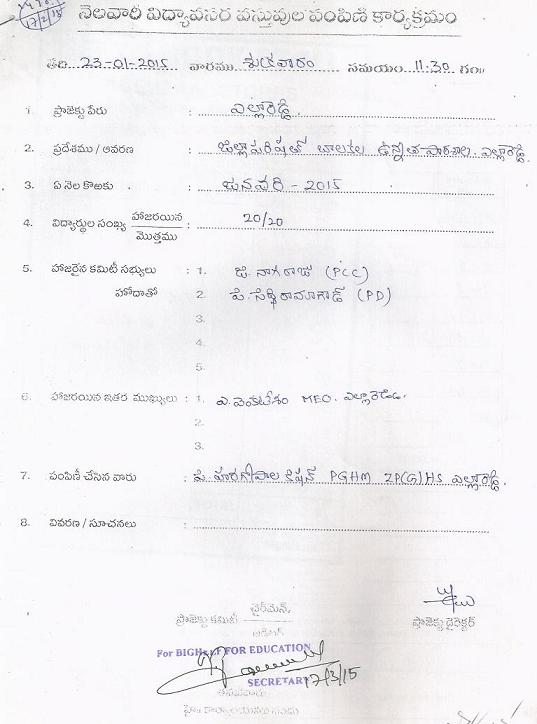 17/2/15
నెలవారి విద్యావసర వస్తువుల పంపిణి కార్యక్రమం
తేది 23-01-2015 వారము శుక్రవారం సమయం 11:30 గం॥
1. ప్రాజెక్టు పేరు : ఎల్లారెడ్డి.
2. ప్రదేశము / ఆవరణ : జిల్లా పరిషత్ బాలికల ఉన్నత పాఠశాల. ఎల్లారెడ్డి.
3. ఏ నెల కొఱకు : జనవరి - 2015
4. విద్యార్థుల సంఖ్య హాజరయిన / మొత్తము : 20/20
5. హాజరైన కమిటీ సభ్యులు : 1. జి. నాగరాజు (PCC)
హోదాతో 2. పి. (PD)
3.
4.
5.
6. హాజరయిన ఇతర ముఖ్యులు : 1. ఎ. వెంకటేశం MEO. ఎల్లారెడ్డి.
2.
3.
7. పంపిణీ చేసిన వారు : పి. హరగోపాల కిషన్ PGHM ZP(G)HS ఎల్లారెడ్డి.
8. వివరణ / సూచనలు :
చైర్‌మెన్,
ప్రాజెక్టు కమిటీ
ప్రాజెక్టు డైరెక్టర్
For BIGHELP FOR EDUCATION
SECRETARY
17/3/15